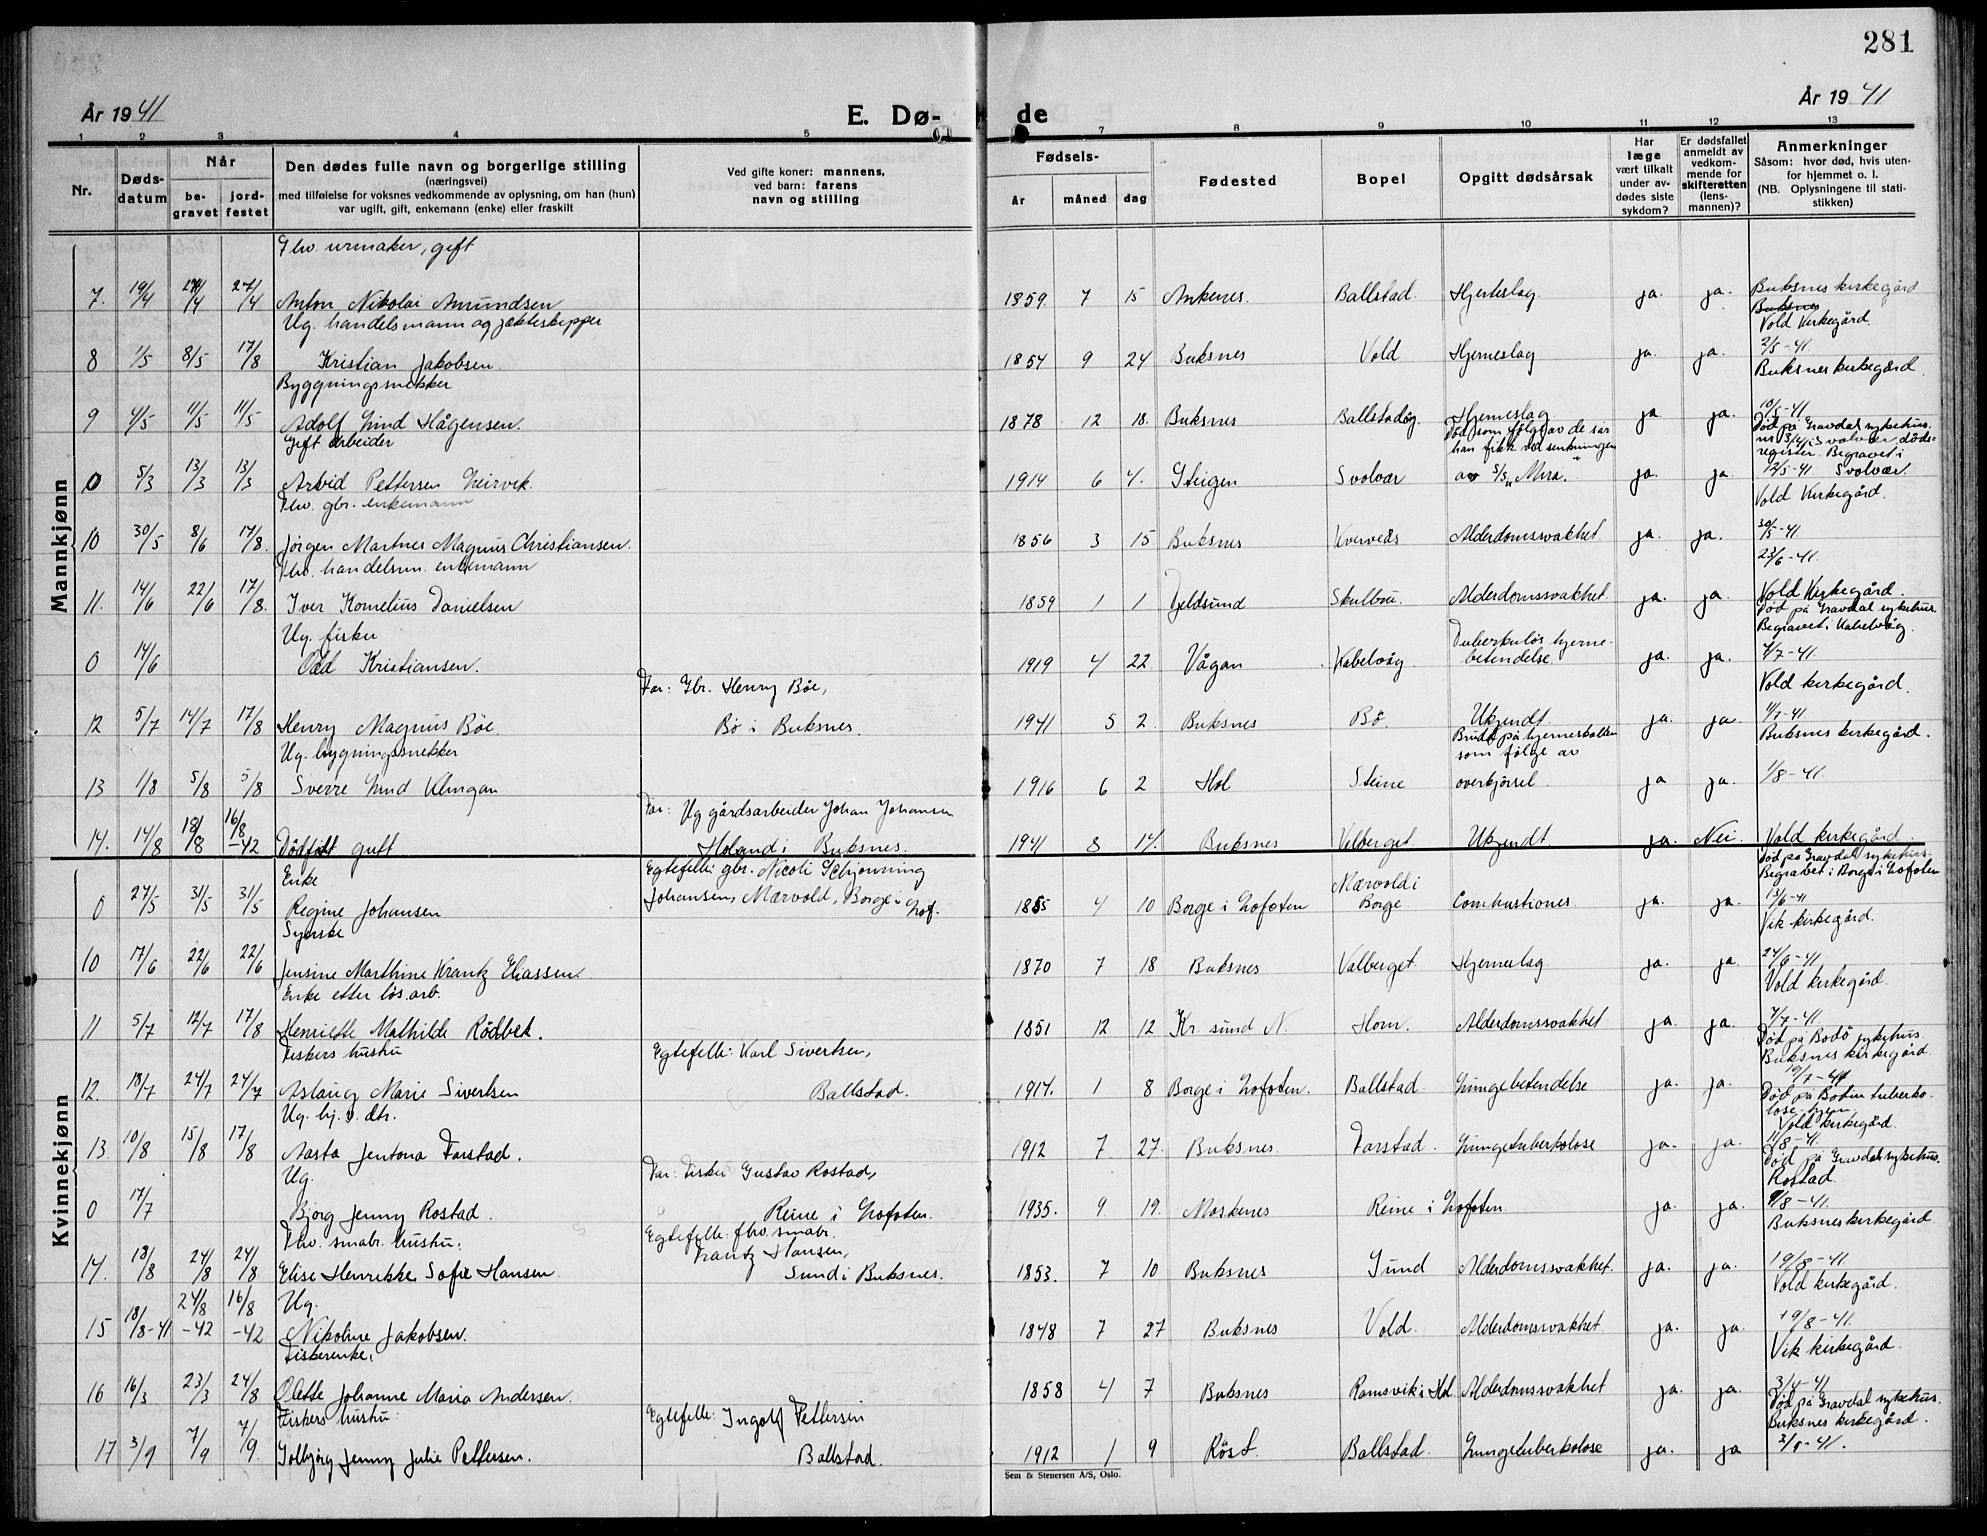 281
År 1941
E. Dø-
de
År 1941
1 2 3 4 5 7 8 9 10 11 12 13
Nr.
Døds-
datum
Når
be-
gravet
jord-
festet
Den dødes fulle navn og borgerlige stilling
(næringsvei)
med tilføielse for voksnes vedkommende av oplysning, om han (hun)
var ugift, gift, enkemann (enke) eller fraskilt
Ved gifte koner: mannens,
ved barn: farens
navn og stilling
Fødsels-
år
måned
dag
Fødested
Bopel
Opgitt dødsårsak
Har
læge
vært tilkalt
under av-
dødes siste
sykdom?
Er dødsfallet
anmeldt av
vedkom-
mende for
skifteretten
(lens-
mannen)?
Anmerkninger
Såsom: hvor død, hvis uten-
for hjemmet o. l.
(NB. Oplysningene til stati-
stikken)
Mannkjønn
Fhv. urmaker, gift
7. 19/4 27/4 27/4 Anton Nikolai Amundsen 1859 7 15 Ankenes. Ballstad. Hjerteslag. ja. ja. Buksnes kirkegård
Buksnes
Ug. handelsmann og jekteskipper
Vold Kirkegård.
8 1/5 8/5 17/8 Kristian Jakobsen. 1854 9 24 Buksnes Vold Hjerneslag ja. ja. 2/5-41.
Byggningssnekker
Buksnes kirkegård.
9 4/5 11/5 11/5 Adolf Lind Hågensen. 1878 12 18. Buksnes Ballstadøy Hjerneslag. ja ja. 10/5-41
Gift arbeider
Død som følge av de sår
han fikk ved senkningen
Død på Gravdal sykehus.
nr 3/41 i Svolvær døds=
register. Begravet i
0 5/3 13/3 13/3 Arvid Pettersen Leirvik. 1914 6 4. Steigen Svolvær av S/S „Mira." ja. ja. 12/5-41. Svolvær
Fhv. gbr. enkemann
Vold Kirkegård.
10 30/5 8/6 17/8. Jørgen Martnes Magnus Christiansen. 1856 3 15 Buksnes Alderdomssvakhet ja. ja. 30/5-41
Fhv. handelsm. enkemann
23/6-41.
11. 14/6 22/6 17/8. Iver Kornelius Danielsen 1859 1 1 Tjeldsund Skulbru. Alderdomssvakhet ja. ja. Vold Kirkegård.
Ug. fisker
Tuberkuløs hjerne-
Død på Gravdal sykehus
Begravet i Kabelvåg.
0 14/6 Odd Kristiansen. 1919 4 22 Vågan Kabelvåg. betendelse ja. ja. 7/7-41.
Far: Gbr. Henry Bøe,
Vold kirkegård.
12 5/7 14/7 17/8 Henry Magnus Bøe. Bø i Buksnes. 1941 5 2. Buksnes Bø. Ukjendt ja. ja. 11/7-41
Ug. bygningssnekker
Brudd på hjerneskallen
som følge av
Buksnes kirkegård.
13 1/8 5/8 5/8 Sverre Lind Klingan 1916 6 2 Hol Steine overkjørsel. ja ja. 1/8-41.
Far: Ug gårdsarbeider Johan Johansen
14. 14/8 18/8 16/8-42 Dødfødt gutt Holand i Buksnes. 1941 8 14. Buksnes Valberget. Ukjendt ja. Nei. Vold kirkegård.
Kvinnekjønn
Enke
Egtefelle: gbr. Nicoli Schjønning
Død på Gravdal sykehus.
Begravet i Borge i Lofoten
0 27/5 31/5 31/5 Regine Johansen Johansen, Mærvold, Borge i Lof. 1855 4 10 Borge i Lofoten Mærvold i Borge Combustiones ja. ja. 13/6-41
Syerske
Vik kirkegård.
10 17/6 22/6 22/6 Jensine Marthine Krantz Eliassen. 1870 7 18 Buksnes Valberget. Hjerneslag ja. ja. 24/6-41
Enke etter løs.arb.
Vold kirkegård.
11 5/7 12/7 17/8 Henriette Mathilde Rødbek. 1851 12 12 Kr. sund N. Horn. Alderdomssvakhet ja. ja. 7/7-41.
Fiskers hustru
Egtefelle: Karl Sivertsen,
Død på Bodø sykehus.
Buksnes kirkegård.
12. 18/7 24/7 24/7 Aslaug Marie Sivertsen Ballstad. 1914. 1 8 Borge i Lofoten. Ballstad Lungebetendelse ja. ja. 19/7-41
Ug. hj.v. dtr.
Død på Boten tuberko-
lose. hjem
Vold kirkegård.
13. 10/8 15/8 17/8 Aasta Jentona Farstad. 1912 7 27. Buksnes. Farstad. Lungetuberkolose ja. ja. 11/8-41.
Ug.
Far: fisker Gustav Rostad,
Død på Gravdal sykehus.
Rostad.
0 17/7 Bjørg Jenny Rostad. Reine i Lofoten. 1935. 9 19. Moskenes Reine i Lofoten ja. ja. 9/8-41.
Fhv. småbr. hustru.
Egtefelle: fhv. småbr.
Frantz Hansen,
Buksnes kirkegård.
14. 18/8 24/8 24/8 Elise Henrikke Sofie Hansen. Sund i Buksnes. 1853. 7 10 Buksnes Sund Alderdomssvakhet. ja. ja. 19/8-41
Ug.
Vold kirkegård.
15 18/8-41 24/8-42 16/8-42 Nikoline Jakobsen. 1848 7 27 Buksnes Vold. Alderdomssvakhet ja. ja. 19/8-41.
Fiskerenke,
Vik kirkegård.
16 16/3 23/3 24/8 Olette Johanne Maria Andersen. 1858 4 7 Buksnes Ramsvik i Hol Alderdomssvakhet ja. ja.
Fiskers hustru:
Egtefelle: Ingolf Pettersen
Død på Gravdal sykehus.
Buksnes kirkegård.
17 3/9 7/9 7/9. Solbjørg Jenny Julie Pettersen. Ballstad. 1912 1 9 Røst. Ballstad. Lungetuberkolose ja. ja
Sem & Stenersen A/S, Oslo.